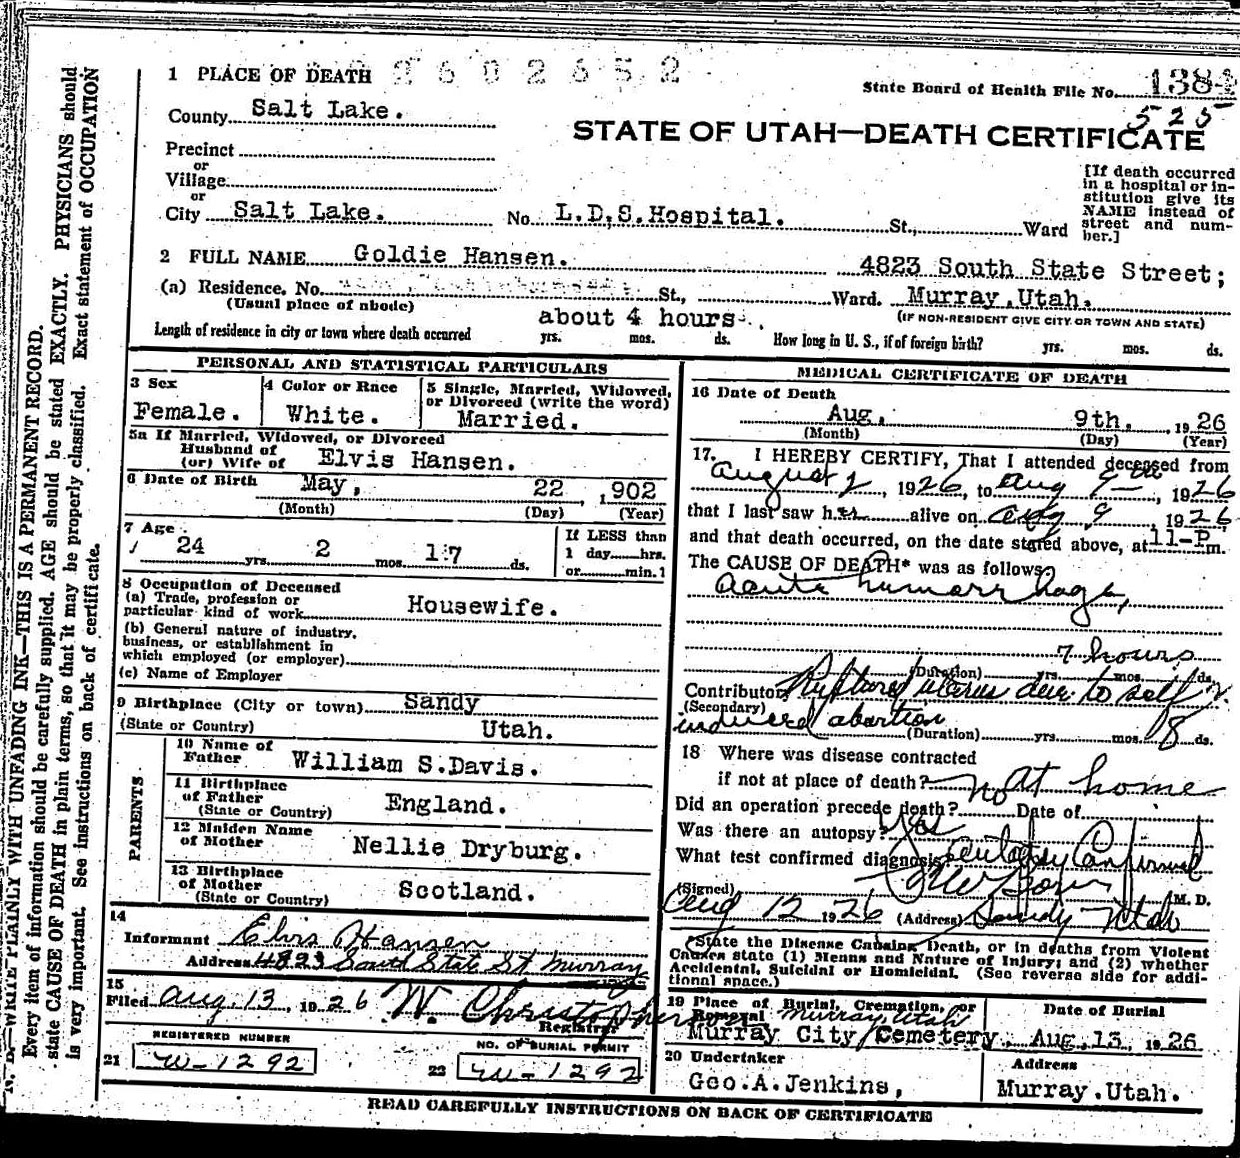 1 PLACE OF DEATH 2602652
State Board of Health File No. 1384
525
County Salt Lake.
STATE OF UTAH—DEATH CERTIFICATE
Precinct
or
Village
or
City Salt Lake. No. L.D.S.Hospital. St., Ward
[If death occurred
in a hospital or in-
stitution give its
NAME instead of
street and num-
ber.]
2 FULL NAME Goldie Hansen. 4823 South State Street;
(a) Residence. No. St., Ward. Murray Utah.
(Usual place of abode)
(IF NON-RESIDENT GIVE CITY OR TOWN AND STATE)
about 4 hours
Length of residence in city or town where death occurred yrs. mos. ds. How long in U. S., if of foreign birth? yrs. mos. ds.
PERSONAL AND STATISTICAL PARTICULARS
3 Sex
Female.
4 Color or Race
White.
5 Single, Married, Widowed,
or Divorced (write the word)
Married.
5a If Married, Widowed, or Divorced
Husband of
(or) Wife of Elvis Hansen.
6 Date of Birth May, 22 , 1902
(Month) (Day) (Year)
7 Age
24 yrs. 2 mos. 17 ds.
If LESS than
1 day hrs.
or min.?
8 Occupation of Deceased
(a) Trade, profession or
particular kind of work Housewife.
(b) General nature of industry,
business, or establishment in
which employed (or employer)
(c) Name of Employer
9 Birthplace (City or town) Sandy
(State or Country) Utah.
PARENTS
10 Name of
Father William S.Davis.
11 Birthplace
of Father England.
(State or Country)
12 Maiden Name
of Mother Nellie Dryburg.
13 Birthplace
of Mother Scotland.
(State or Country)
14
Informant Elvis Hansen
Address 4823 South State St. Murray
15
Filed Aug. 13, 1926 W. Christopherson
Registrar
REGISTERED NUMBER
21 W-1292
NO. OF BURIAL PERMIT
22 W-1292
MEDICAL CERTIFICATE OF DEATH
16 Date of Death
Aug. 9th. , 1926
(Month) (Day) (Year)
17. I HEREBY CERTIFY, That I attended deceased from
August 2, 1926, to Aug 9th, 1926
that I last saw her alive on Aug 9, 1926
and that death occurred, on the date stated above, at 11-P m.
The CAUSE OF DEATH* was as follows:
Acute humorrhage,
7 hours
(Duration) yrs. mos. ds.
Contributory Ruptured uterus due to self
(Secondary)
induced abortion (Duration) yrs. mos. 8 ds.
18 Where was disease contracted
if not at place of death? At home
Did an operation precede death? no Date of
Was there an autopsy? Yes
What test confirmed diagnosis? autopsy Confirmed
(Signed) M. D.
Aug 12 1926 (Address) Sandy Utah
*State the Disease Causing Death, or in deaths from Violent
Causes state (1) Means and Nature of Injury; and (2) whether
Accidental, Suicidal or Homicidal. (See reverse side for addi-
tional space.)
19 Place of Burial, Cremation, or
Removal Murray Utah
Murray City Cemetery.
Date of Burial
Aug.13, 1926
20 Undertaker
Geo.A.Jenkins,
Address
Murray.Utah.
READ CAREFULLY INSTRUCTIONS ON BACK OF CERTIFICATE
N. B.—WRITE PLAINLY WITH UNFADING INK—THIS IS A PERMANENT RECORD.
Every item of information should be carefully supplied. AGE should be stated EXACTLY. PHYSICIANS should
state CAUSE OF DEATH in plain terms, so that it may be properly classified. Exact statement of OCCUPATION
is very important. See instructions on back of certificate.